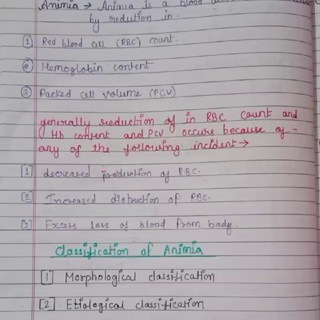 Animia → Animia is a blood
by reduction in.
① Red blood cell (RBC) count.
② Hemoglobin content
③ Packed cell volume (PCV)
generally reduction of in RBC count and
Hb content and PCV occurs because of -
any of the following incident →
[1] decreased production of RBC.
[2] Increased distruction of RBC.
[3] Excess loss of blood from body.
Classification of Animia
[1] Morphological classification
[2] Etiological classification